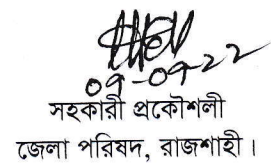 09-09-22
সহকারী প্রকৌশলী
জেলা পরিষদ, রাজশাহী।